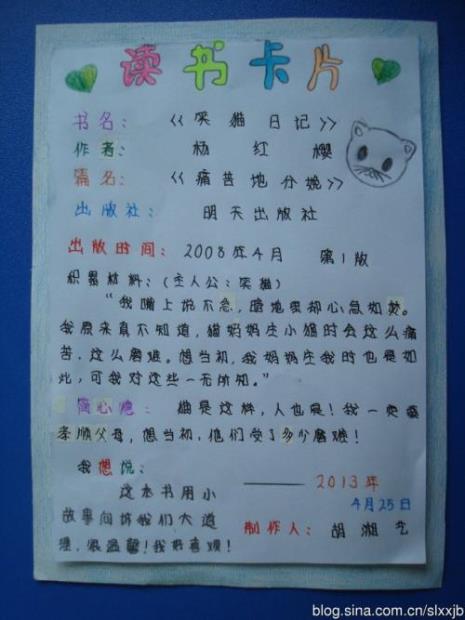 读书卡片
书名：《笑猫日记》
作者：杨红樱
篇名：《痛苦地分娩》
出版社：明天出版社
出版时间：2008年4月 第1版
积累材料：（主人公：笑猫）
“我嘴上说不急，暗地里却心急如焚。
我原来真不知道，猫妈妈生小猫时会这么痛
苦，这么磨难。想当初，我妈妈生我时也是如
此，可我对这些一无所知。”
心意：猫是这样，人也是！我一定要
孝顺父母，想当初，他们受了多少磨难！
我想说：
这本书用小
故事向我们大道
理，很温馨！我好喜欢！
——2013年
4月25日
制作人：胡湘艺
blog.sina.com.cn/slxxjb